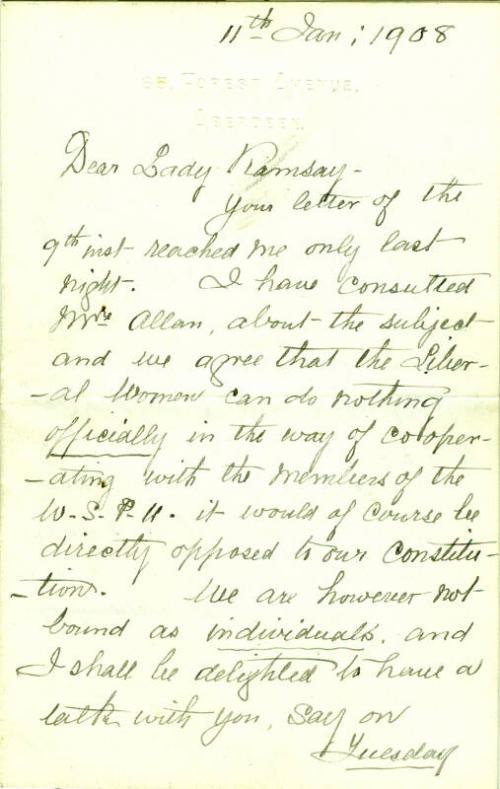 11th Jan; 1908
68, Forest Avenue,
Aberdeen.
Dear Lady Ramsay -
Your letter of the
9th inst reached me only last
night. I have consulted
Mrs Allan, about the subject
and we agree that the Liber-
-al Women can do nothing
officially in the way of cooper-
-ating with the members of the
W.S.P.U. it would of course be
directly opposed to our Constitu-
-tion. We are however not
bound as individuals. and
I shall be delighted to have a
talk with you, say on
Tuesday